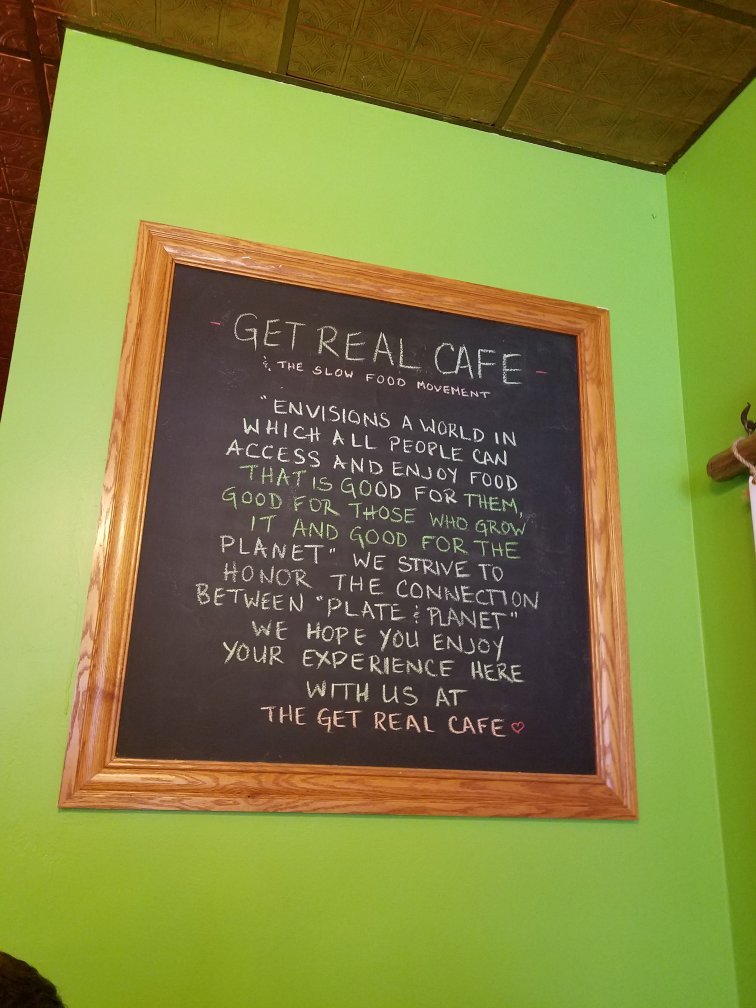 - GET REAL CAFE -
& THE SLOW FOOD MOVEMENT
"ENVISIONS A WORLD IN
WHICH ALL PEOPLE CAN
ACCESS AND ENJOY FOOD
THAT IS GOOD FOR THEM,
GOOD FOR THOSE WHO GROW
IT AND GOOD FOR THE
PLANET" WE STRIVE TO
HONOR THE CONNECTION
BETWEEN "PLATE & PLANET"
WE HOPE YOU ENJOY
YOUR EXPERIENCE HERE
WITH US AT
THE GET REAL CAFE ♡